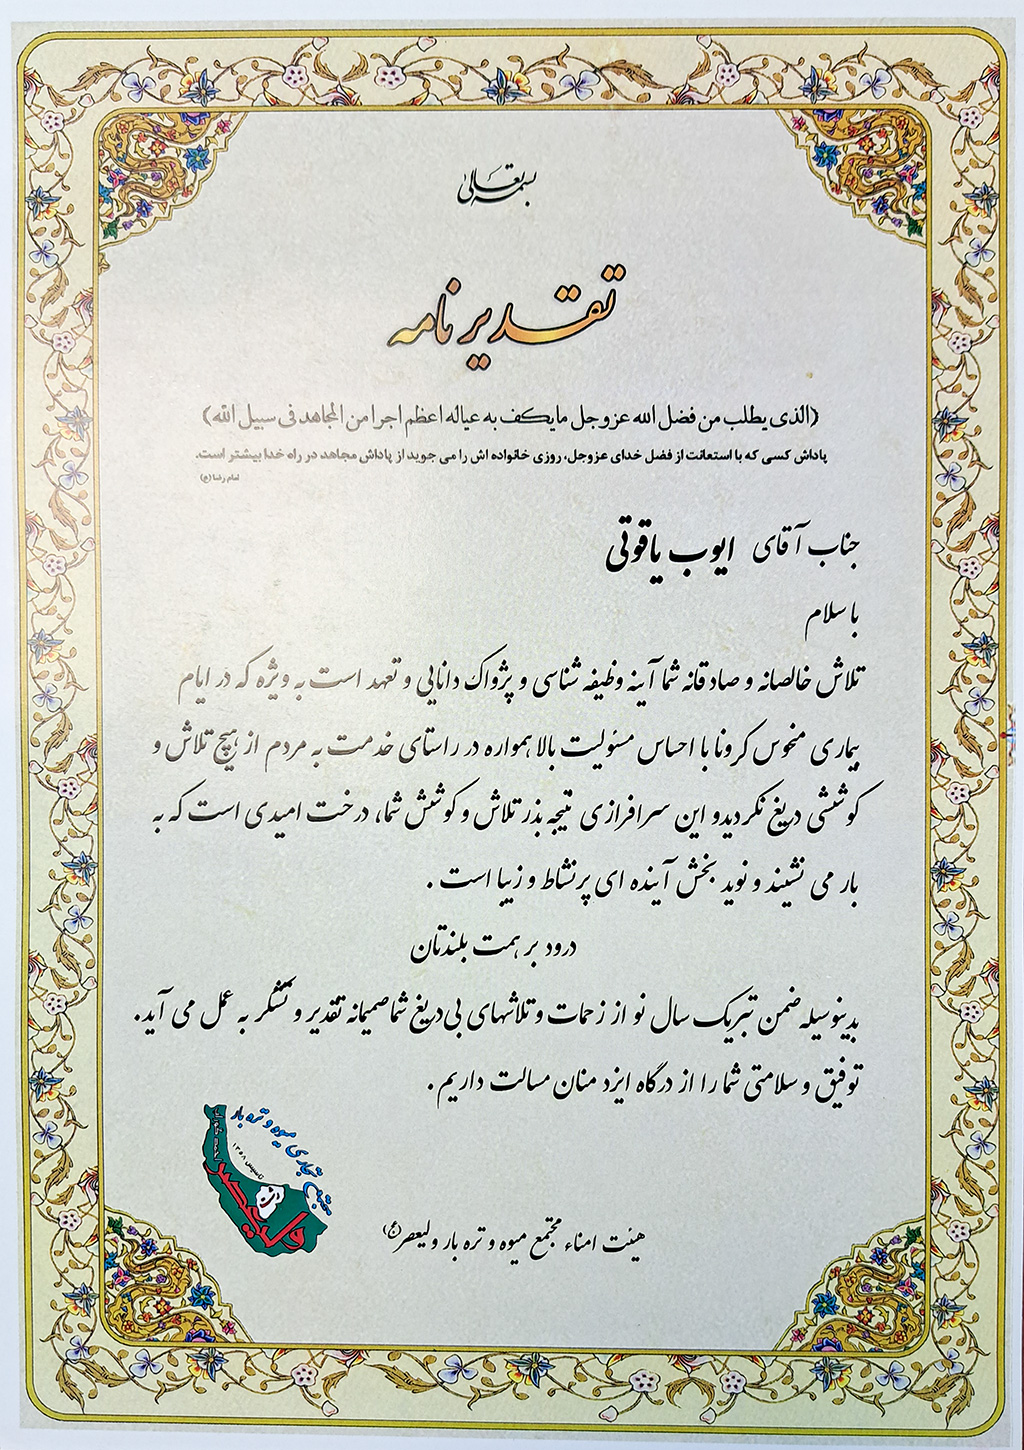 بسمه تعالی
تقدیر نامه
(الذی یطلب من فضل الله عزوجل مایکف به عیاله اعظم اجرا من المجاهد فی سبیل الله)
پاداش کسی که با استعانت از فضل خدای عزوجل، روزی خانواده اش را می جوید از پاداش مجاهد در راه خدا بیشتر است.
امام رضا (ع)
جناب آقای ایوب یاقوتی
با سلام
تلاش خالصانه و صادقانه شما آینه وظیفه شناسی و پژواک دانایی و تعهد است به ویژه که در ایام
بیماری منحوس کرونا با احساس مسئولیت بالا همواره در راستای خدمت به مردم از هیچ تلاش و
کوششی دریغ نکردیدو این سرافرازی نتیجه بذر تلاش و کوشش شما، درخت امیدی است که به
بار می نشیند و نوید بخش آینده ای پرنشاط و زیبا است .
درود بر همت بلندتان
بدینوسیله ضمن تبریک سال نو از زحمات و تلاشهای بی دریغ شما صمیمانه تقدیر و تشکر به عمل می آید.
توفیق و سلامتی شما را از درگاه ایزد منان مسالت داریم .
مجتمع تجاری میوه و تره بار
تاسیس ۱۳۵۸
ولیعصر
هیئت امناء مجتمع میوه و تره بار ولیعصر(عج)